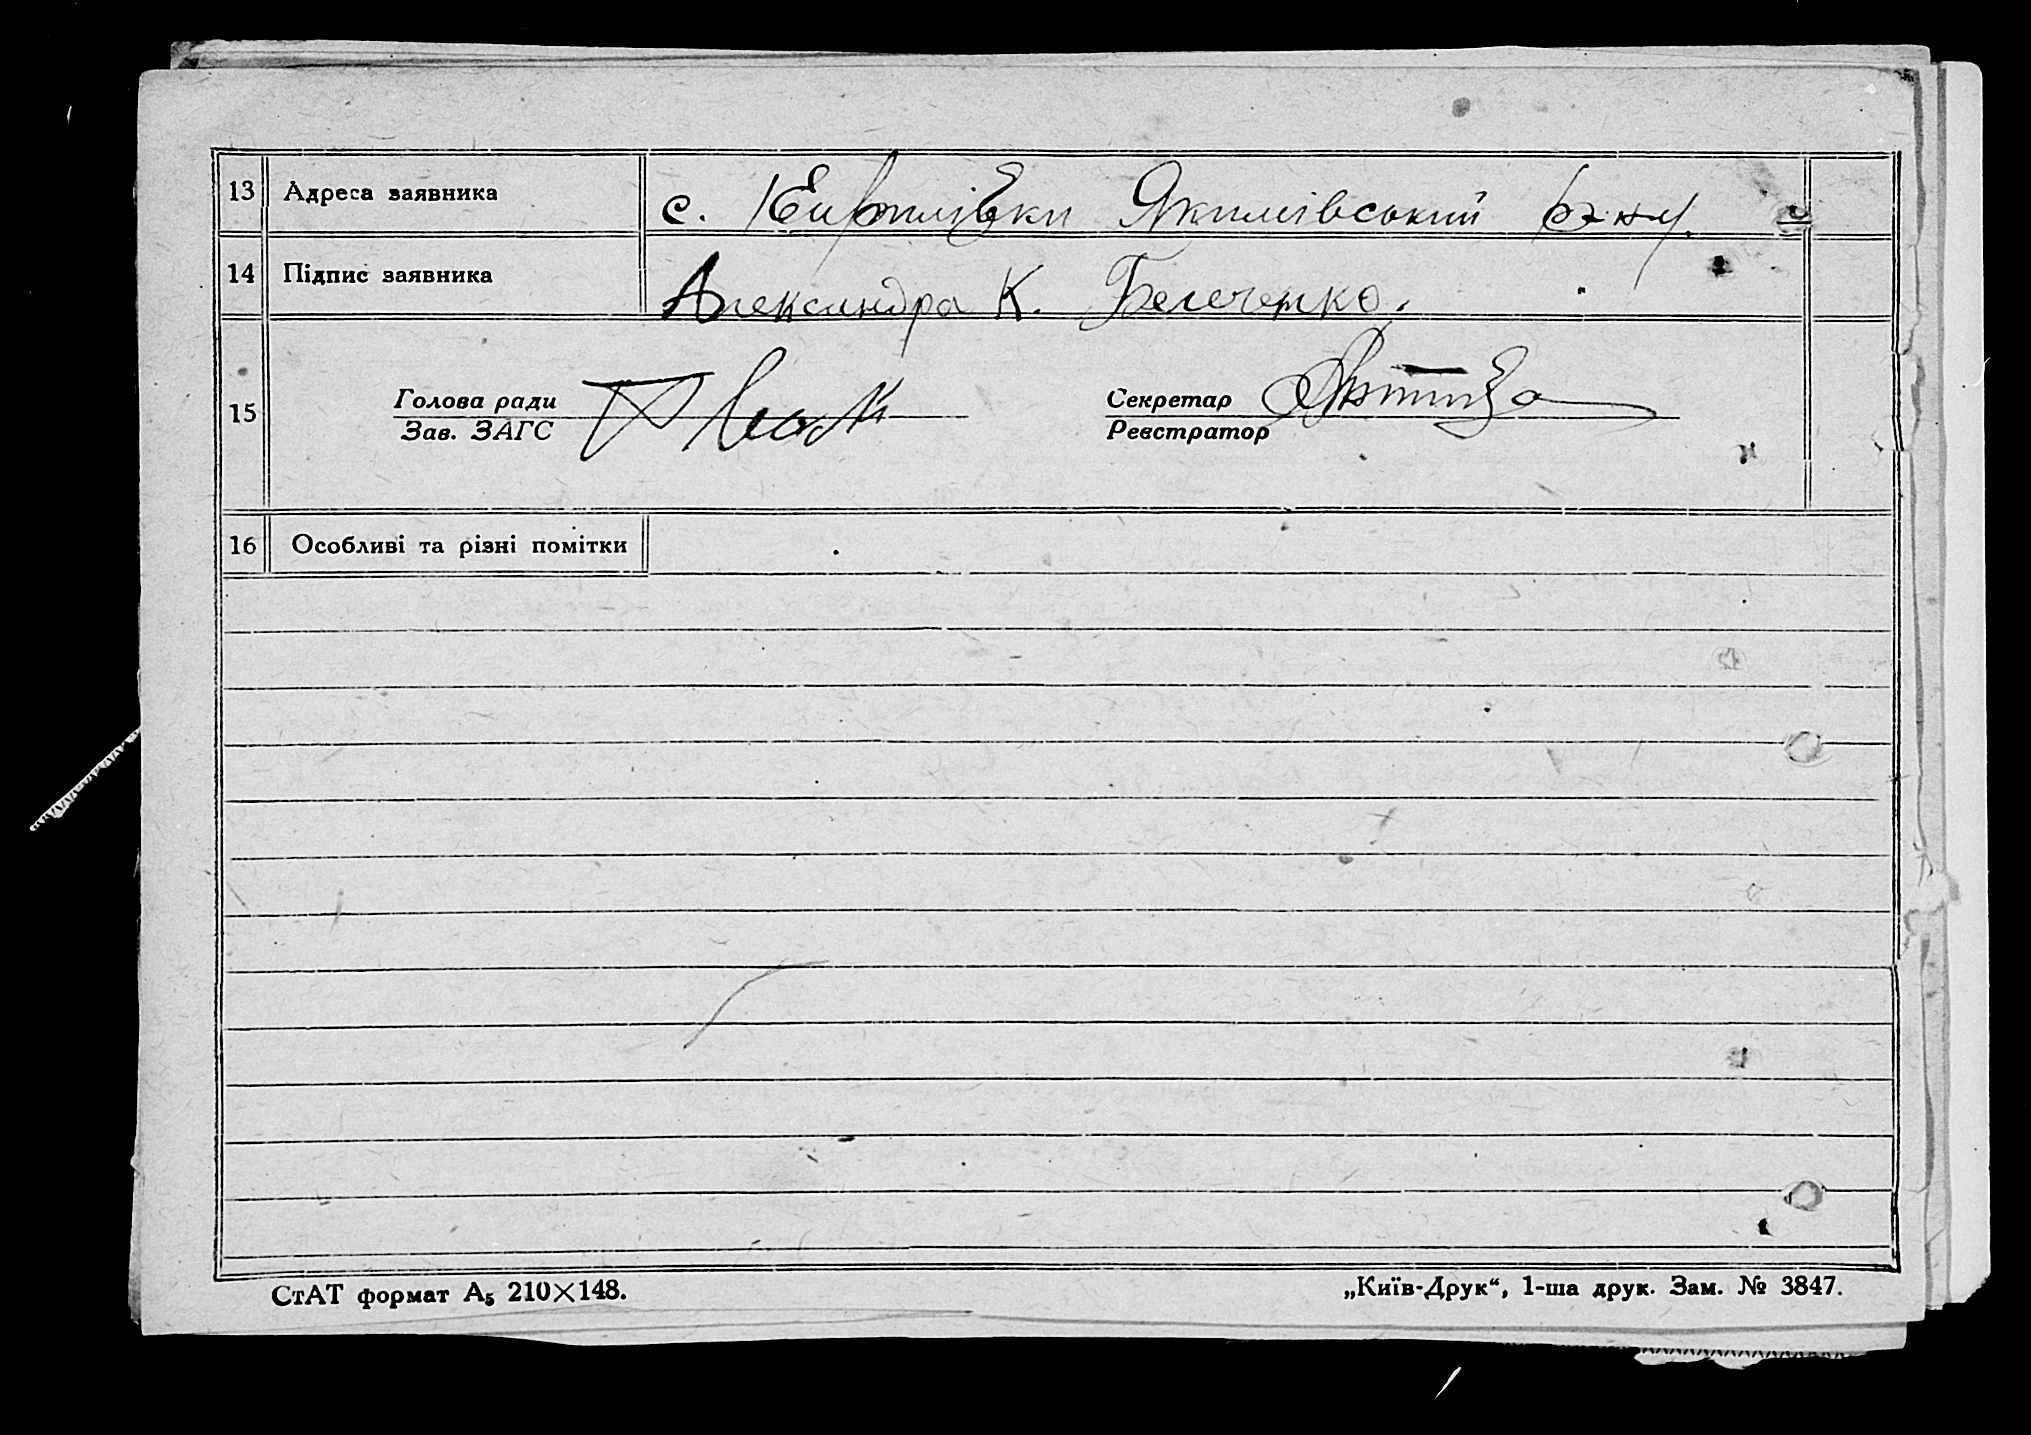 13 Адреса заявника с. Кирилівки Якимівський р-ну.
14 Підпис заявника Александра К. Белеченко.
Голова ради Секретар
15
Зав. ЗАГС Реєстратор
16 Особливі та різні помітки
СтАТ формат А5 210×148. „Київ-Друк“, 1-ша друк. Зам. № 3847.